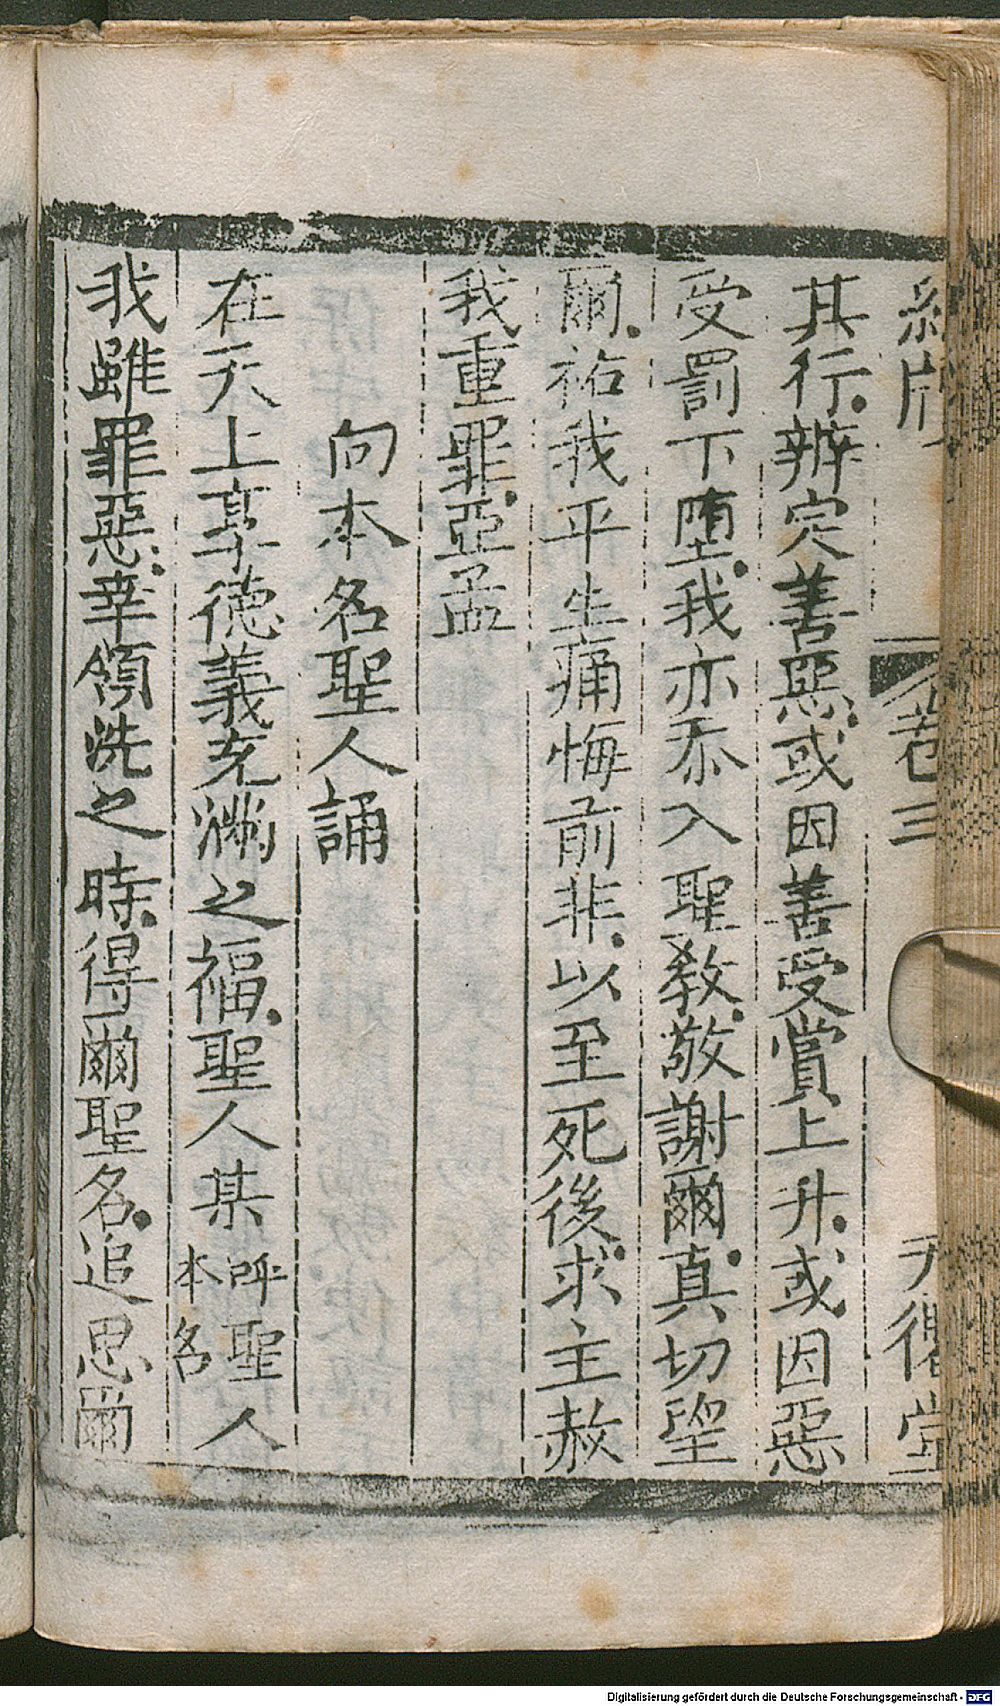 卷三
堂
其行辨定善惡或因善受賞上升或因惡
受罰下墮我亦忝入聖教敬謝爾真切望
爾祐我平生痛悔前非以至死後求主赦
我重罪亞孟
向本名聖人誦
在天上享德義充滿之福聖人某呼聖人本名
我雖罪惡幸領洗之時得爾聖名追思爾
Digitalisierung gefördert durch die Deutsche Forschungsgemeinschaft - DFG